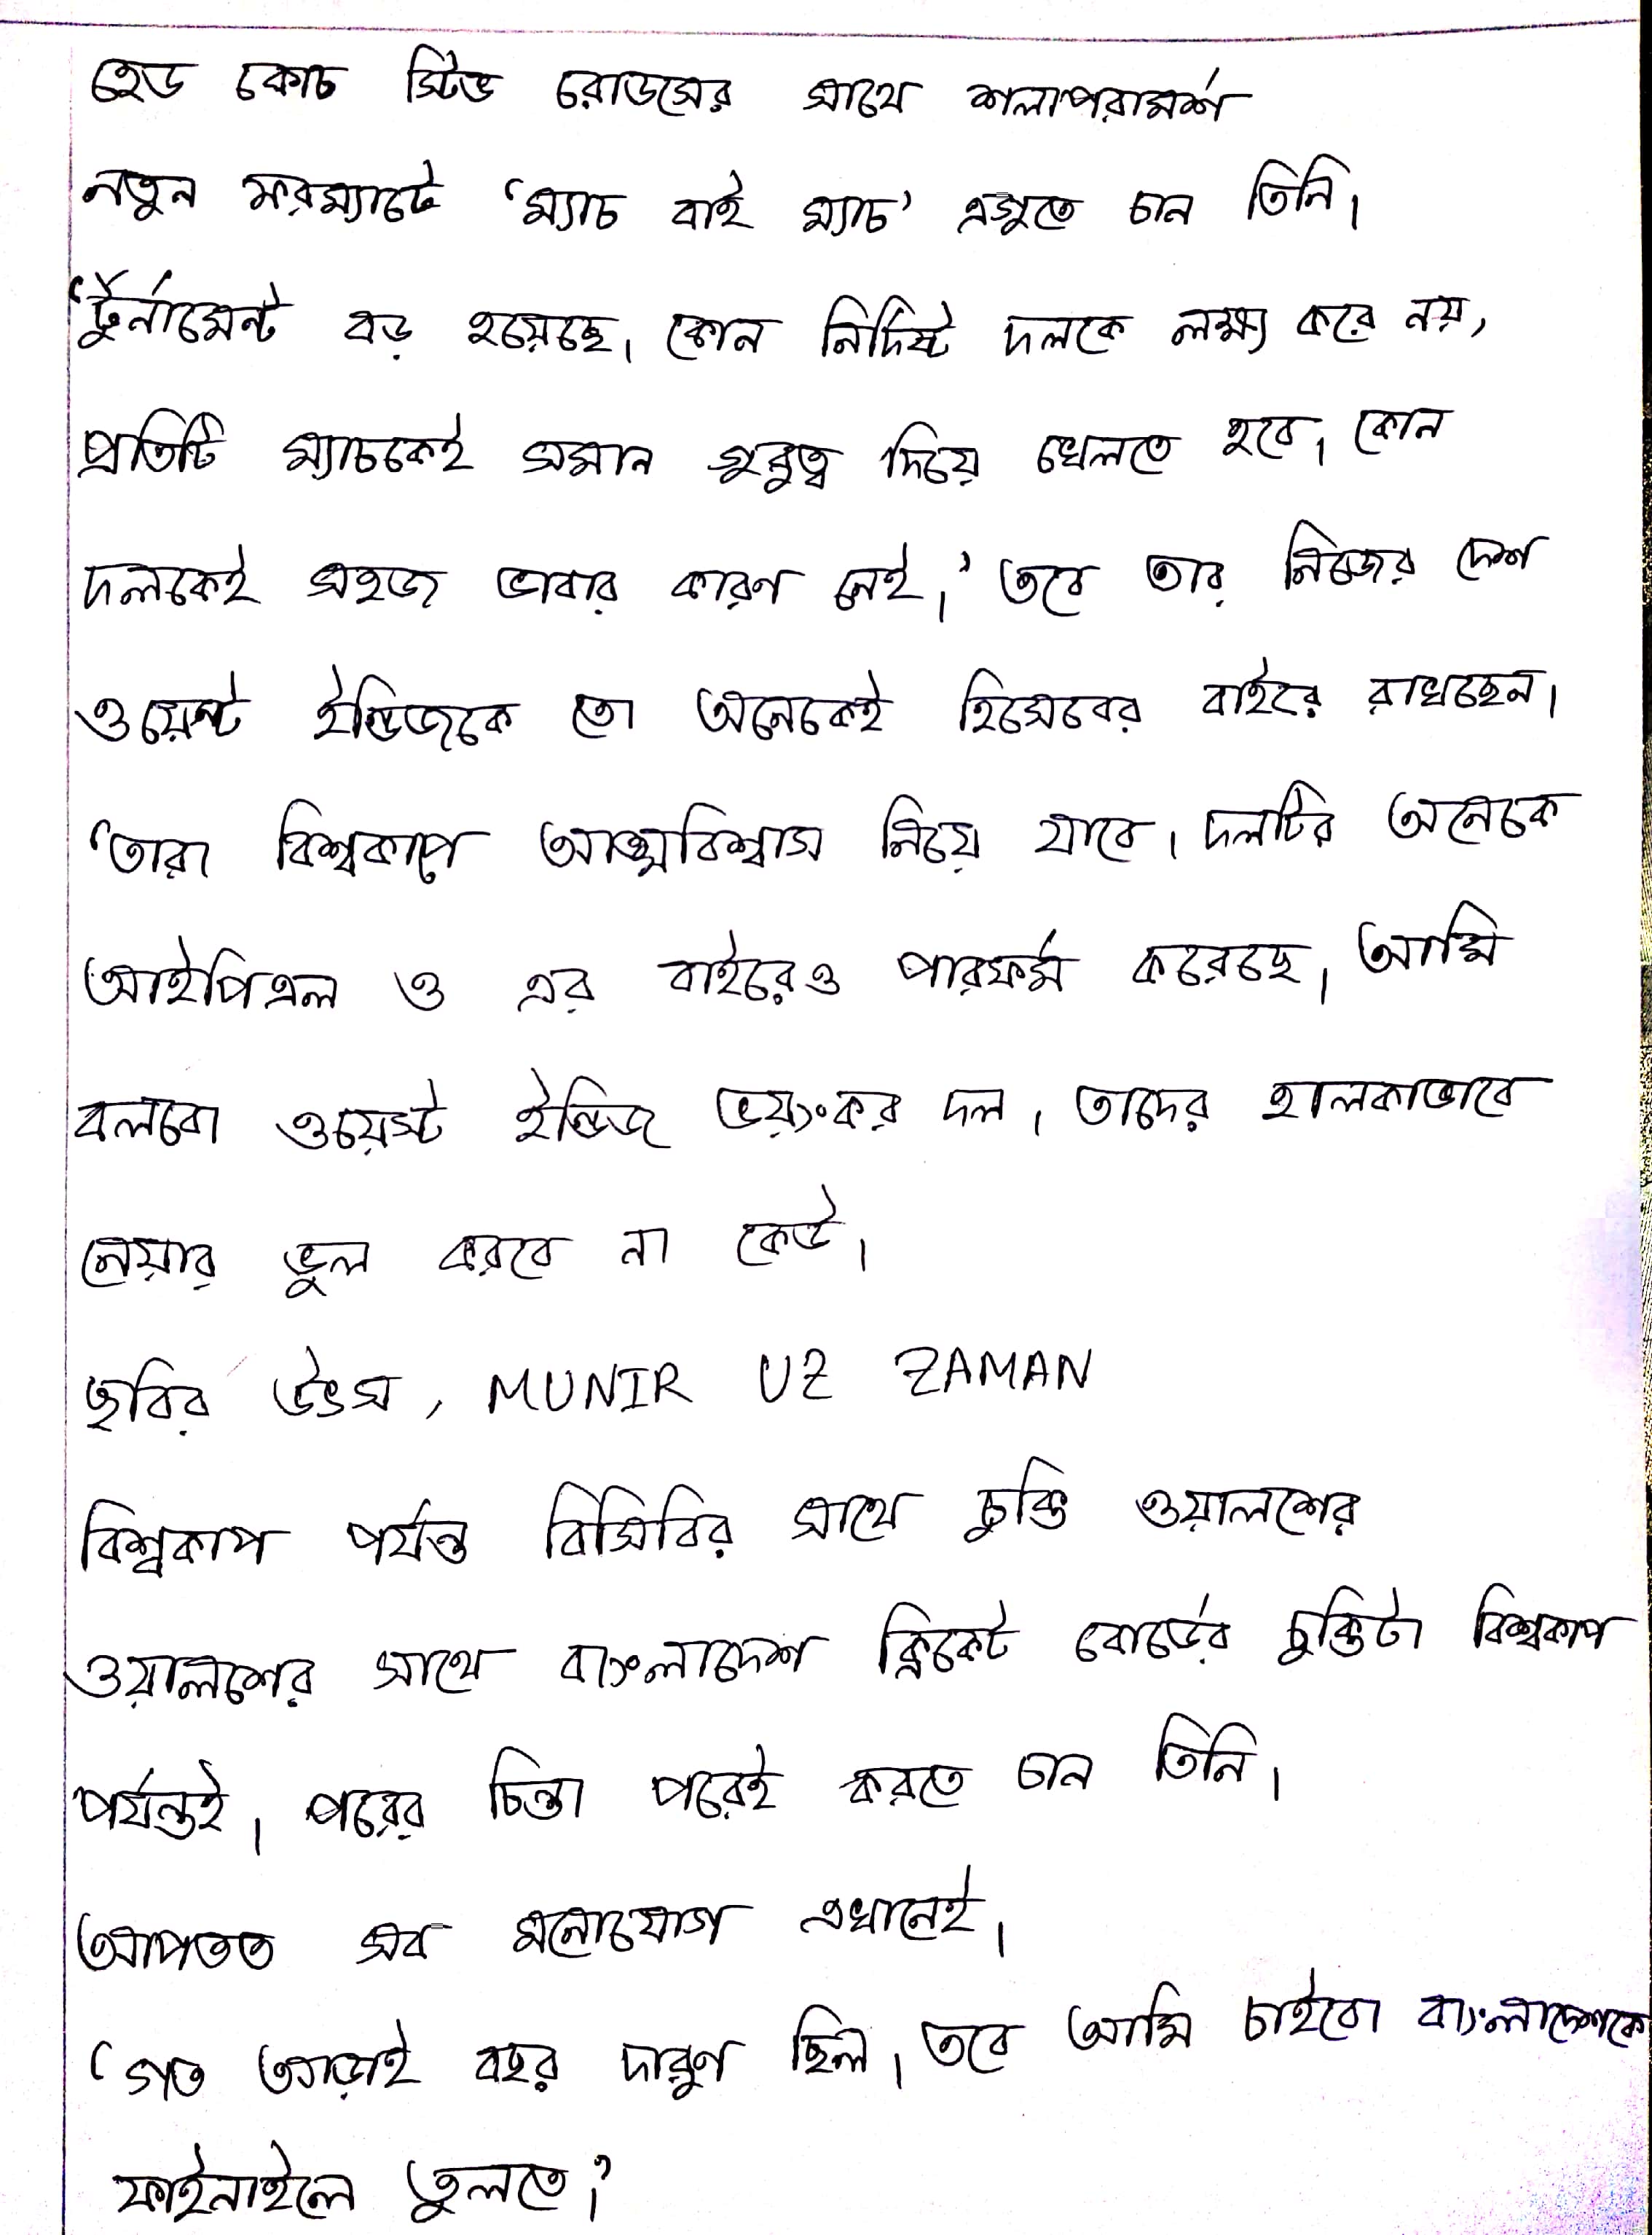 হেড কোচ স্টিভ রোডসের সাথে শলাপরামর্শ
নতুন ফরম্যাটে ‘ম্যাচ বাই ম্যাচ’ এগুতে চান তিনি।
‘টুর্নামেন্ট বড় হয়েছে। কোন নির্দিষ্ট দলকে লক্ষ্য করে নয়,
প্রতিটি ম্যাচকেই সমান গুরুত্ব দিয়ে খেলতে হবে। কোন
দলকেই সহজ ভাবার কারণ নেই।’ তবে তার নিজের দেশ
ওয়েস্ট ইন্ডিজকে তো অনেকেই হিসেবের বাইরে রাখছেন।
‘তারা বিশ্বকাপে আত্মবিশ্বাস নিয়ে যাবে। দলটির অনেকে
আইপিএল ও এর বাইরেও পারফর্ম করেছে। আমি
বলবো ওয়েস্ট ইন্ডিজ ভয়ংকর দল। তাদের হালকাভাবে
নেয়ার ভুল করবে না কেউ।
ছবির উৎস, MUNIR UZ ZAMAN
বিশ্বকাপ পর্যন্ত বিসিবির সাথে চুক্তি ওয়ালশের
ওয়ালশের সাথে বাংলাদেশ ক্রিকেট বোর্ডের চুক্তিটা বিশ্বকাপ
পর্যন্তই। পরের চিন্তা পরেই করতে চান তিনি।
আপতত সব মনোযোগ এখানেই।
‘গত আড়াই বছর দারুণ ছিল। তবে আমি চাইবো বাংলাদেশকে
ফাইনাইলে তুলতে।’